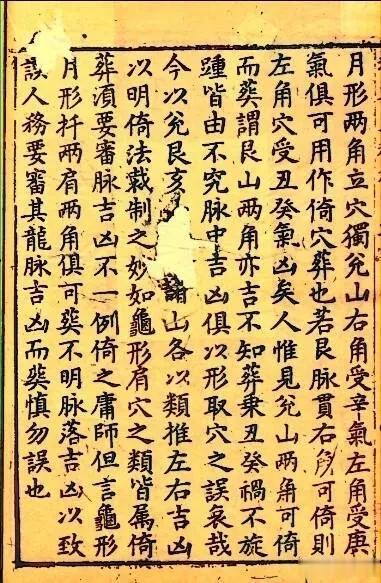 月形兩角立穴獨兊山右角受辛氣左角受庚
氣俱可用作倚穴葬也若艮脉貫右可倚則
左角穴受丑癸氣凶矣人惟見兊山兩角可倚
而葬謂艮山兩角亦吉不知葬秉丑癸禍不旋
踵皆由不究脉中吉凶俱以形取穴之誤哀哉
今以兊艮亥諸山各以類推左右吉凶
以明倚法裁制之妙如龜形肩穴之類皆属倚
葬湏要審脉吉凶不一例倚之庸師但言龜形
月形扦兩肩兩角俱可葬不明脉落吉凶以致
誤人務要審其龍脉吉凶而葬慎勿誤也